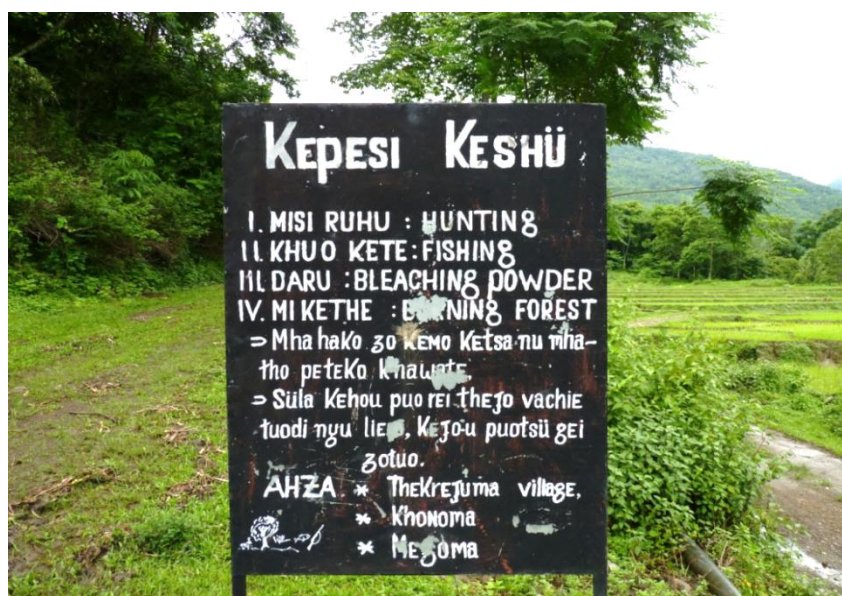 KEPESI KESHÜ
I. MISI RUHU : HUNTING
II. KHUO KETE : FISHING
III. DARU : BLEACHING POWDER
IV. MIKETHE : BURNING FOREST
⇒ Mha hako zo KEMO Ketsa nu mha-
tho peteko khawate
⇒ Süla Kehou puo rei thejo vachie
tuodi nyu , Kejo-u puotsü gei
zotuo.
AHZA * Thekrejuma village,
* Khonoma
* Mezoma